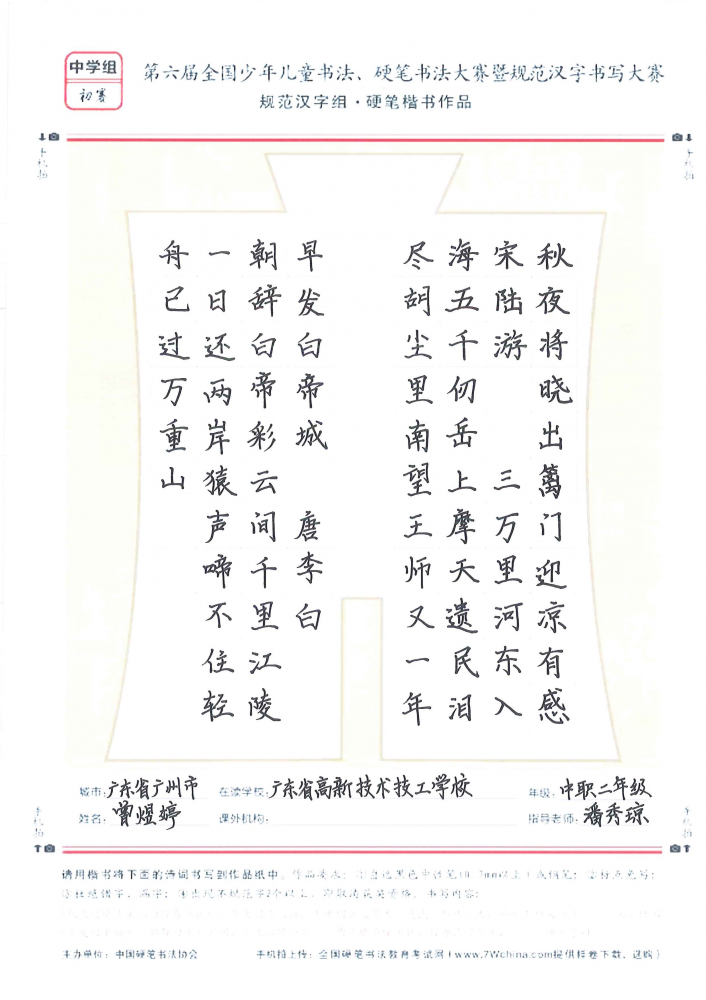 中学组
初赛
第六届全国少年儿童书法、硬笔书法大赛暨规范汉字书写大赛
规范汉字组·硬笔楷书作品
手机拍
手机拍
秋夜将晓出篱门迎凉有感
宋陆游 三万里河东入
海五千仞岳上摩天遗民泪
尽胡尘里南望王师又一年
早发白帝城 唐李白
朝辞白帝彩云间千里江陵
一日还两岸猿声啼不住轻
舟已过万重山
城市:广东省广州市 在读学校:广东省高新技术技工学校 年级:中职二年级
姓名:曾煜婷 课外机构: 指导老师:潘秀琼
手机拍
手机拍
请用楷书将下面的诗词书写到作品纸中。作品要求:
书写内容:
主办单位:中国硬笔书法协会 手机拍上传:全国硬笔书法教育考试网(www.7Wchina.com提供样卷下载、选购)